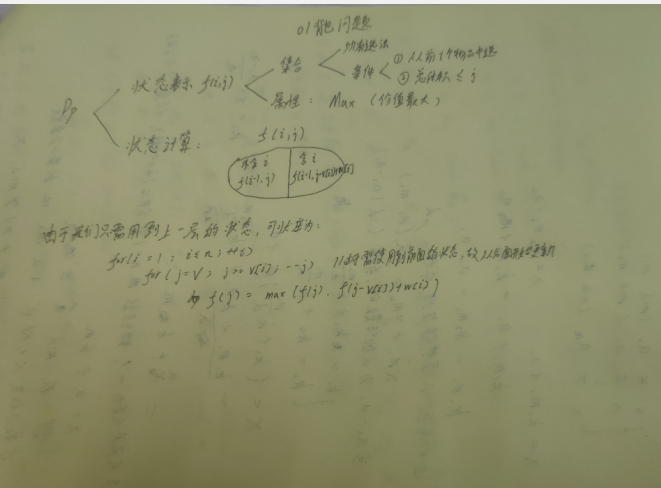 01背包问题
所有选法
集合
条件
① 从前i个物品中选
② 总体积 ≤ j
状态表示 f(i,j)
属性: Max (价值最大)
Dp
状态计算:
f(i,j)
不含i 含i
f(i-1,j) f(i-1,j-v[i])+w[i]
由于我们只需用到上一层的状态,可以变为:
for(i=1; i≤n; ++i)
for(j=V; j>=v[i]; --j) //需使用到前面的状态,故从后面开始更新
f(j) = max(f(j), f(j-v[i])+w(i)